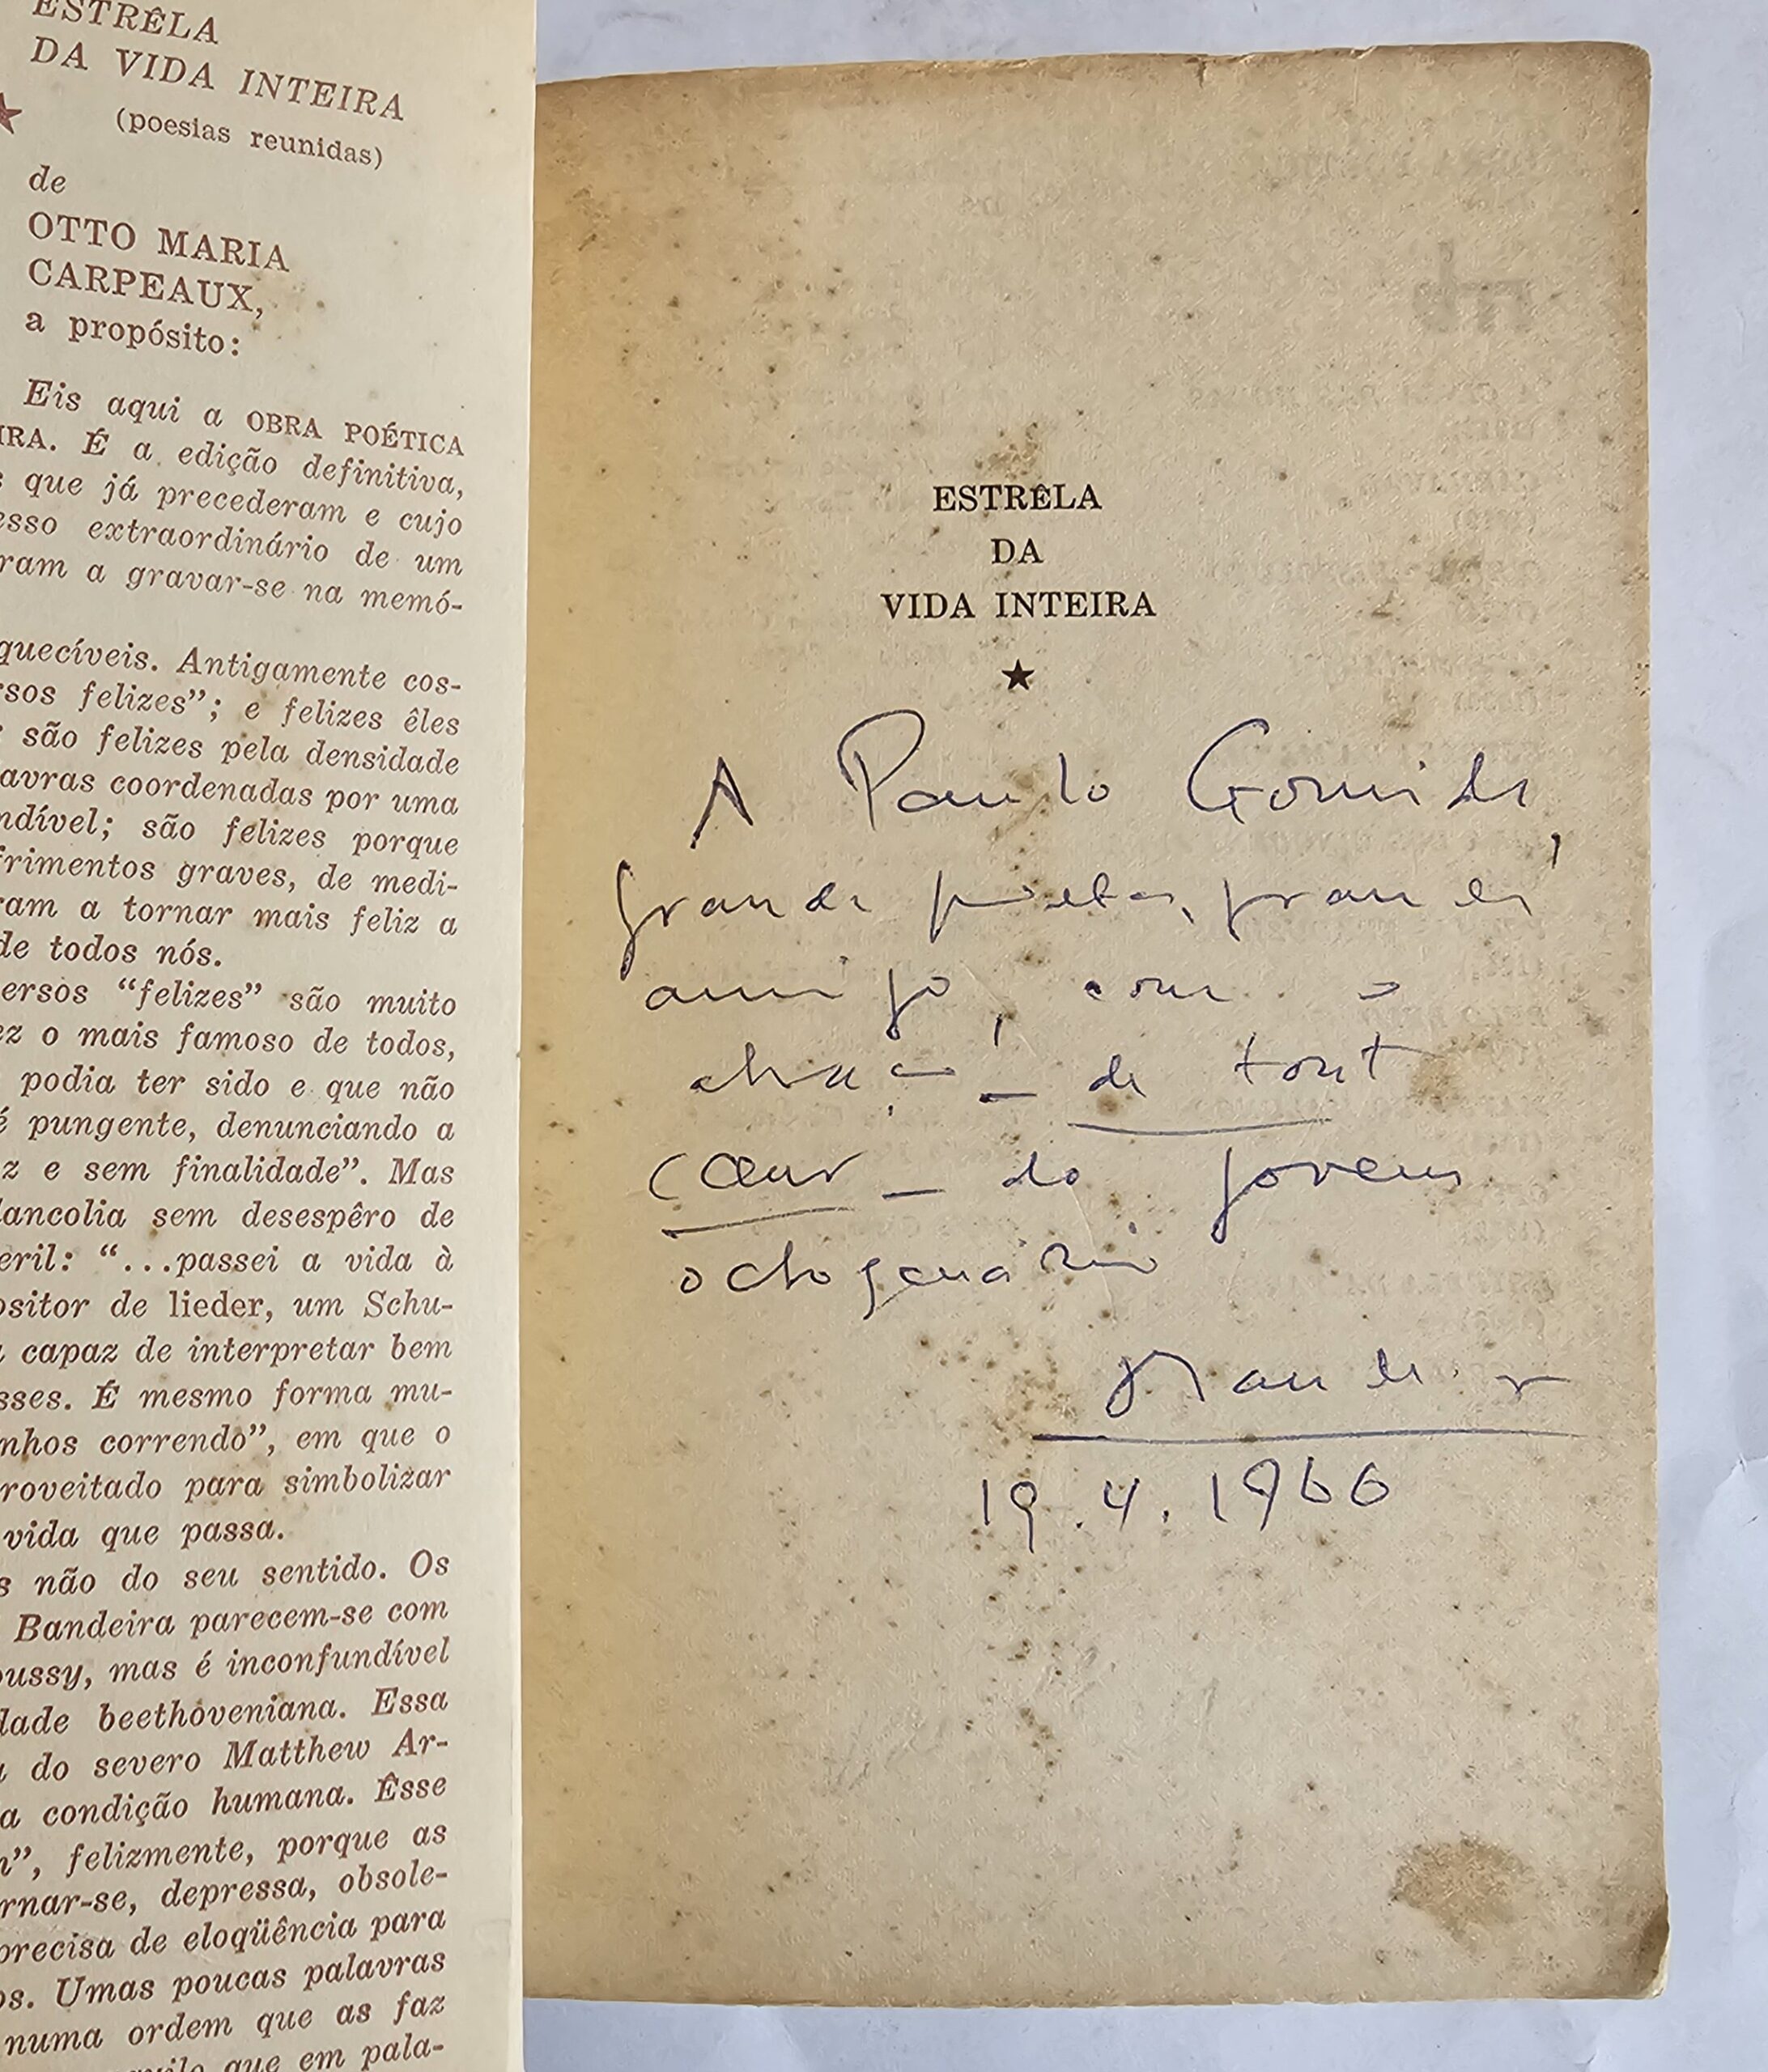 ESTRÊLA
DA VIDA INTEIRA
(poesias reunidas)
de
OTTO MARIA
CARPEAUX,
a propósito:
Eis aqui a OBRA POÉTICA
IRA. É a edição definitiva,
s que já precederam e cujo
esso extraordinário de um
ram a gravar-se na memó-
quecíveis. Antigamente cos-
rsos felizes"; e felizes êles
são felizes pela densidade
avras coordenadas por uma
ndível; são felizes porque
frimentos graves, de medi-
ram a tornar mais feliz a
de todos nós.
ersos "felizes" são muito
ez o mais famoso de todos,
podia ter sido e que não
é pungente, denunciando a
z e sem finalidade". Mas
lancolia sem desespêro de
eril: "...passei a vida à
ositor de lieder, um Schu-
capaz de interpretar bem
sses. É mesmo forma mu-
nhos correndo", em que o
roveitado para simbolizar
vida que passa.
s não do seu sentido. Os
Bandeira parecem-se com
oussy, mas é inconfundível
dade beethoveniana. Essa
do severo Matthew Ar-
a condição humana. Êsse
n", felizmente, porque as
rnar-se, depressa, obsole-
precisa de eloqüência para
os. Umas poucas palavras
numa ordem que as faz
que em pala-
ESTRÊLA
DA
VIDA INTEIRA
A Paulo Gomide,
grande poeta, grande
amigo, com o
abraço – de tout
cœur – do jovem
octogenário
19.4.1966